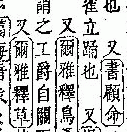 也又書顧命
立踊也又
又爾雅釋鳥
謂之工爵自關
又爾雅釋草